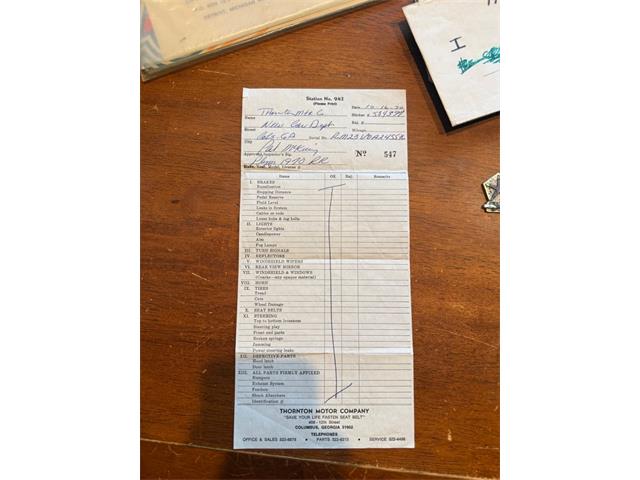 I
Station No. 942
(Please Print)
Thornton Mtr. Co. Date 10-16-70
Name Sticker #
New Car Dept
Street Rej. #
Cols. GA Mileage
City Serial No.
Pat
Approved Inspector's Sig. No 547
Plym 1970 RR
Make, Year, Model, License #
Items OK Rej. Remarks
I. BRAKES
Equalization
Stopping Distance
Pedal Reserve
Fluid Level
Leaks in System
Cables or rods
Loose hubs & lug bolts
II. LIGHTS
Exterior lights
Candlepower
Aim
Fog Lamps
III. TURN SIGNALS
IV. REFLECTORS
V. WINDSHIELD WIPERS
VI. REAR VIEW MIRROR
VII. WINDSHIELD & WINDOWS
(Cracks—any opaque material)
VIII. HORN
IX. TIRES
Tread
Cuts
Wheel Damage
X. SEAT BELTS
XI. STEERING
Top to bottom looseness
Steering play
Front end parts
Broken springs
Jamming
Power steering leaks
XII. DEFECTIVE PARTS
Hood latch
Door latch
XIII. ALL PARTS FIRMLY AFFIXED
Bumpers
Exhaust System
Fenders
Shock Absorbers
Identification #
THORNTON MOTOR COMPANY
"SAVE YOUR LIFE FASTEN SEAT BELT"
12th Street
COLUMBUS, GEORGIA 31902
TELEPHONES
OFFICE & SALES 323-6675 • PARTS 322-6313 • SERVICE 323-4496